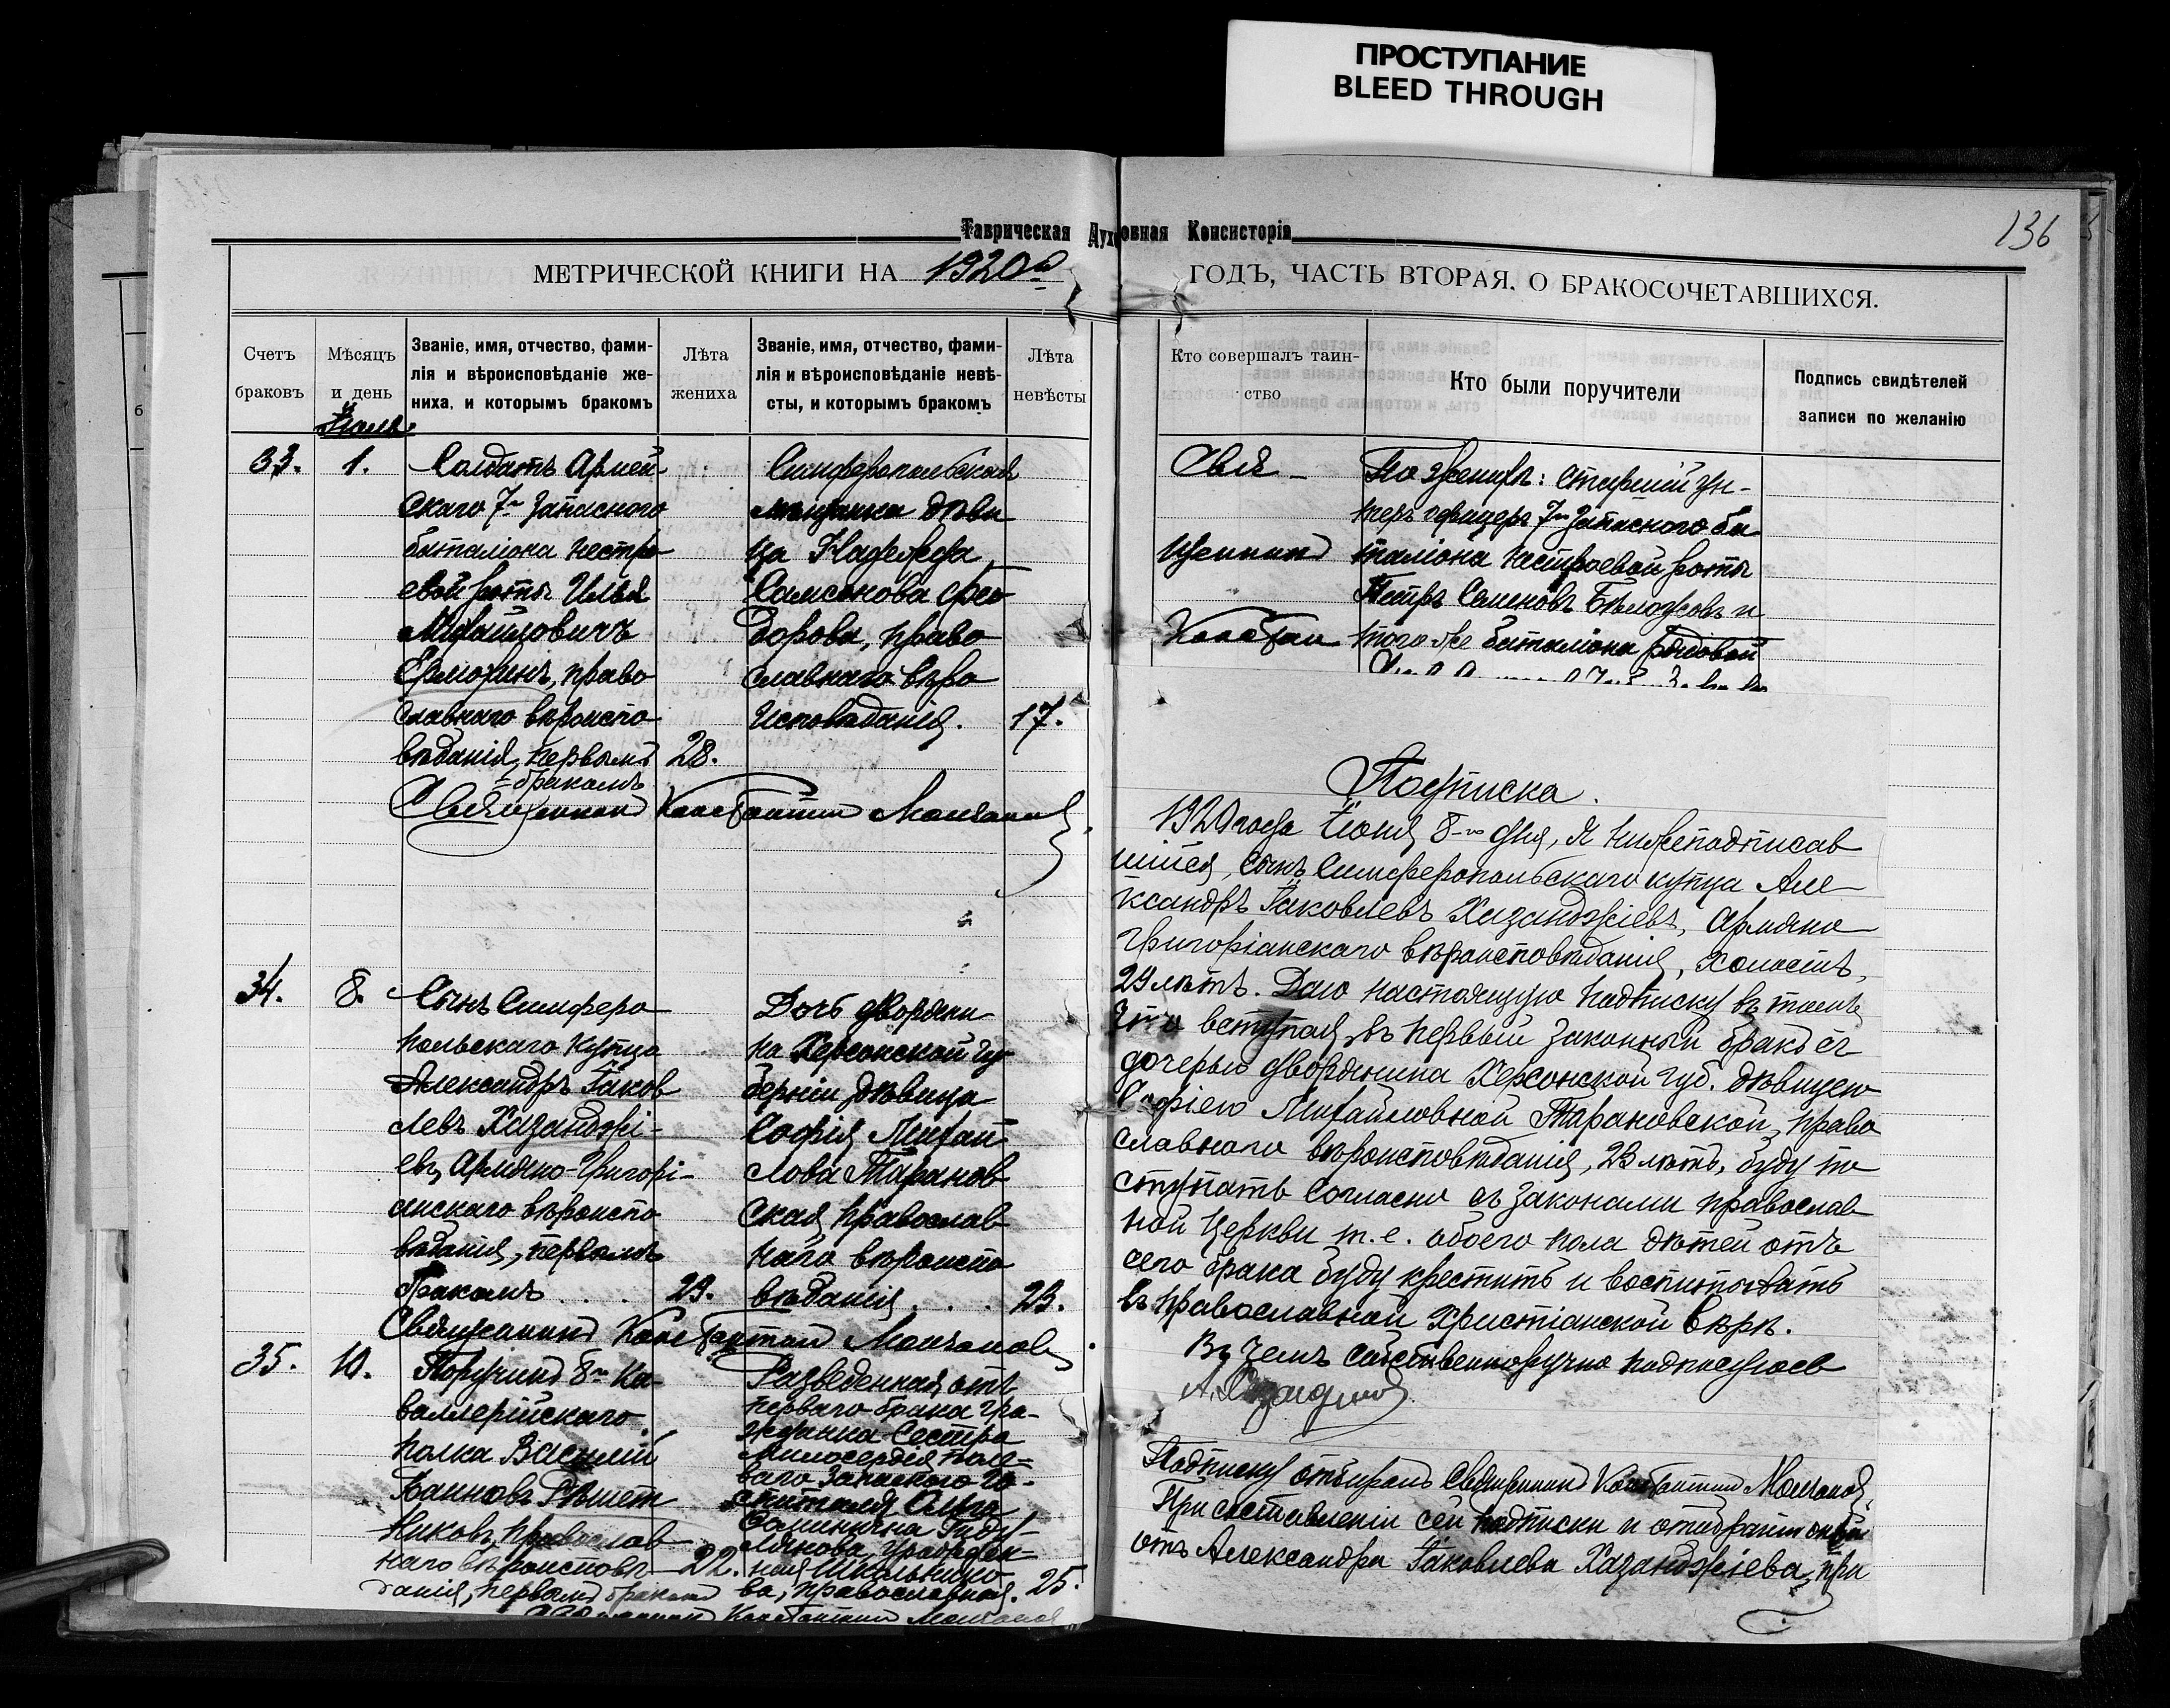 ПРОСТУПАНИЕ
BLEED THROUGH
136
Таврическая Духовная Консисторія
МЕТРИЧЕСКОЙ КНИГИ НА 1920 й
ГОДЪ, ЧАСТЬ ВТОРАЯ, О БРАКОСОЧЕТАВШИХСЯ.
Счетъ
браковъ
Мѣсяцъ
и день
Званіе, имя, отчество, фами-
лія и вѣроисповѣданіе же-
ниха, и которымъ бракомъ
Лѣта
жениха
Званіе, имя, отчество, фами-
лія и вѣроисповѣданіе невѣ-
сты, и которымъ бракомъ
Лѣта
невѣсты
Кто совершалъ таин-
ство
Кто были поручители
Подпись свидѣтелей
записи по желанію
33.
1.
Солдатъ Армей
скаго 7го Запаснаго
баталіона нестро
евой роты Илья
Михайловичъ
право
славнаго вѣроиспо
вѣданія, первымъ
бракомъ
28.
Симферопольская
мѣщанка дѣви
ца Надежда
Самсонова Фео
дорова, право
славнаго вѣро
исповѣданія.
17.
Свя-
щенникъ
Констан
По женихѣ: старшій ун-
теръ офицеръ 7го Запаснаго ба
таліона нестроевой роты
Петръ Семеновъ и
того же баталіона рядовой
Священникъ Константинъ
34.
8.
Сынъ Симферо
польскаго купца
Александръ Іаков
левъ Хазанджі-
евъ, Армяно-Григорі-
анскаго вѣроиспо
вѣданія, первымъ
бракомъ . . .
29.
Дочь дворяни
на Херсонской гу
берніи дѣвица
Софія Михай
лова Таранов
ская православ
наго вѣроиспо
вѣданія . . .
23.
Священникъ Константинъ
35.
10.
Поручикъ 8го Ка-
валлерійскаго
полка Василій
Іаннов
православ
наго вѣроисповѣ
данія, первымъ бракомъ
22.
Разведенная отъ
перваго брака гра-
жданка Сестра
Милосердія поле-
ваго Запаснаго Го-
спиталя Ольга
православная.
25.
Священникъ Константинъ
Подписка.
1920 года Іюня 8-го дня, Я нижеподписав
шійся, сынъ Симферопольскаго купца Але-
ксандръ Іаковлевъ Хазанджіевъ, Армяно-
Григоріанскаго вѣроисповѣданія, холостъ,
29 лѣтъ. Даю настоящую подписку въ томъ
что вступая въ первый законный бракъ съ
дочерью дворянина Херсонской губ. дѣвицею
Софіею Михайловной Тарановской, право
славнаго вѣроисповѣданія, 23 лѣтъ, буду по
ступать согласно съ законами православ
ной церкви т. е. обоего пола дѣтей отъ
сего брака буду крестить и воспитывать
въ православной Христіанской вѣрѣ.
Въ чемъ собственноручно подписуюсь
Подписку отбиралъ Священникъ Константинъ
При составленіи сей подписки и отобраніи оной
отъ Александра Іаковлева Хазанджіева, при